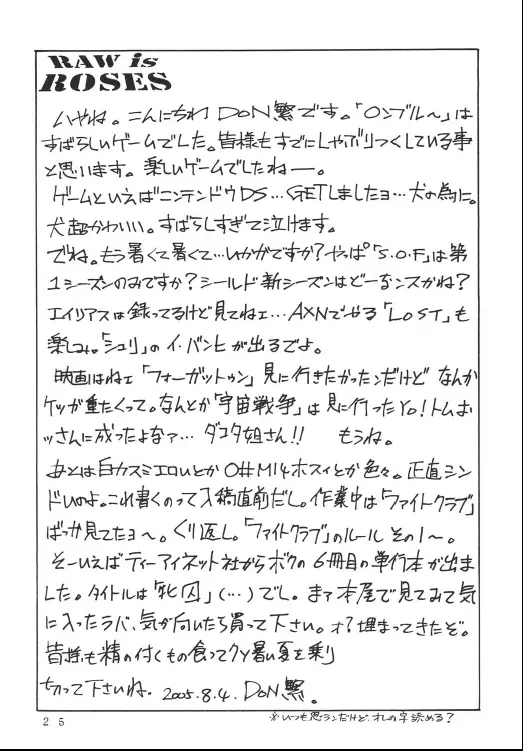 RAW is
ROSES
いやね。こんにちわ DON繁です。「ロンブル〜」は
すばらしいゲームでした。皆様もすでにしゃぶりつくしている事
と思います。楽しいゲームでしたねー。
ゲームといえばニンテンドウDS…GETしましたヨ…犬の為に。
犬超かわいい。すばらしすぎて泣けます。
でね。もう暑くて暑くて…いかがですか?やっぱ「S.O.F」は第
1シーズンのみですか?シールド新シーズンはどーなンスかね?
エイリアスは録ってるけど見てねェ…AXNでやる「LOST」も
楽しみ。「シュリ」のイ・バンヒが出るでよ。
映画はねェ「フォーガットゥン」見に行きたかったンだけど なんか
ケツが重たくって。なんとか「宇宙戦争」は見に行ったYo!トムお
ッさんに成ったよなァ… ダコタ姐さん!! もうね。
あとは白カスミエロいとか O#M14ホスィとか色々。正直シン
ドいのよ。これ書くのって入稿直前だし。作業中は「ファイトクラブ」
ばっか見てたヨ〜。くり返し。「ファイトクラブ」のルール その1〜。
そーいえばティーアイネット社からボクの6冊目の単行本が出ま
した。タイトルは「牝囚」(…)でし。まァ本屋で見てみて気
に入ったラバ、気が向いたら買って下さい。オ?埋まってきたぞ。
皆様も精の付くもの食ってクソ暑い夏を乗り
切って下さいね。2005.8.4. DON繁。
※いつも思うンだけど、オレの字読める?
25